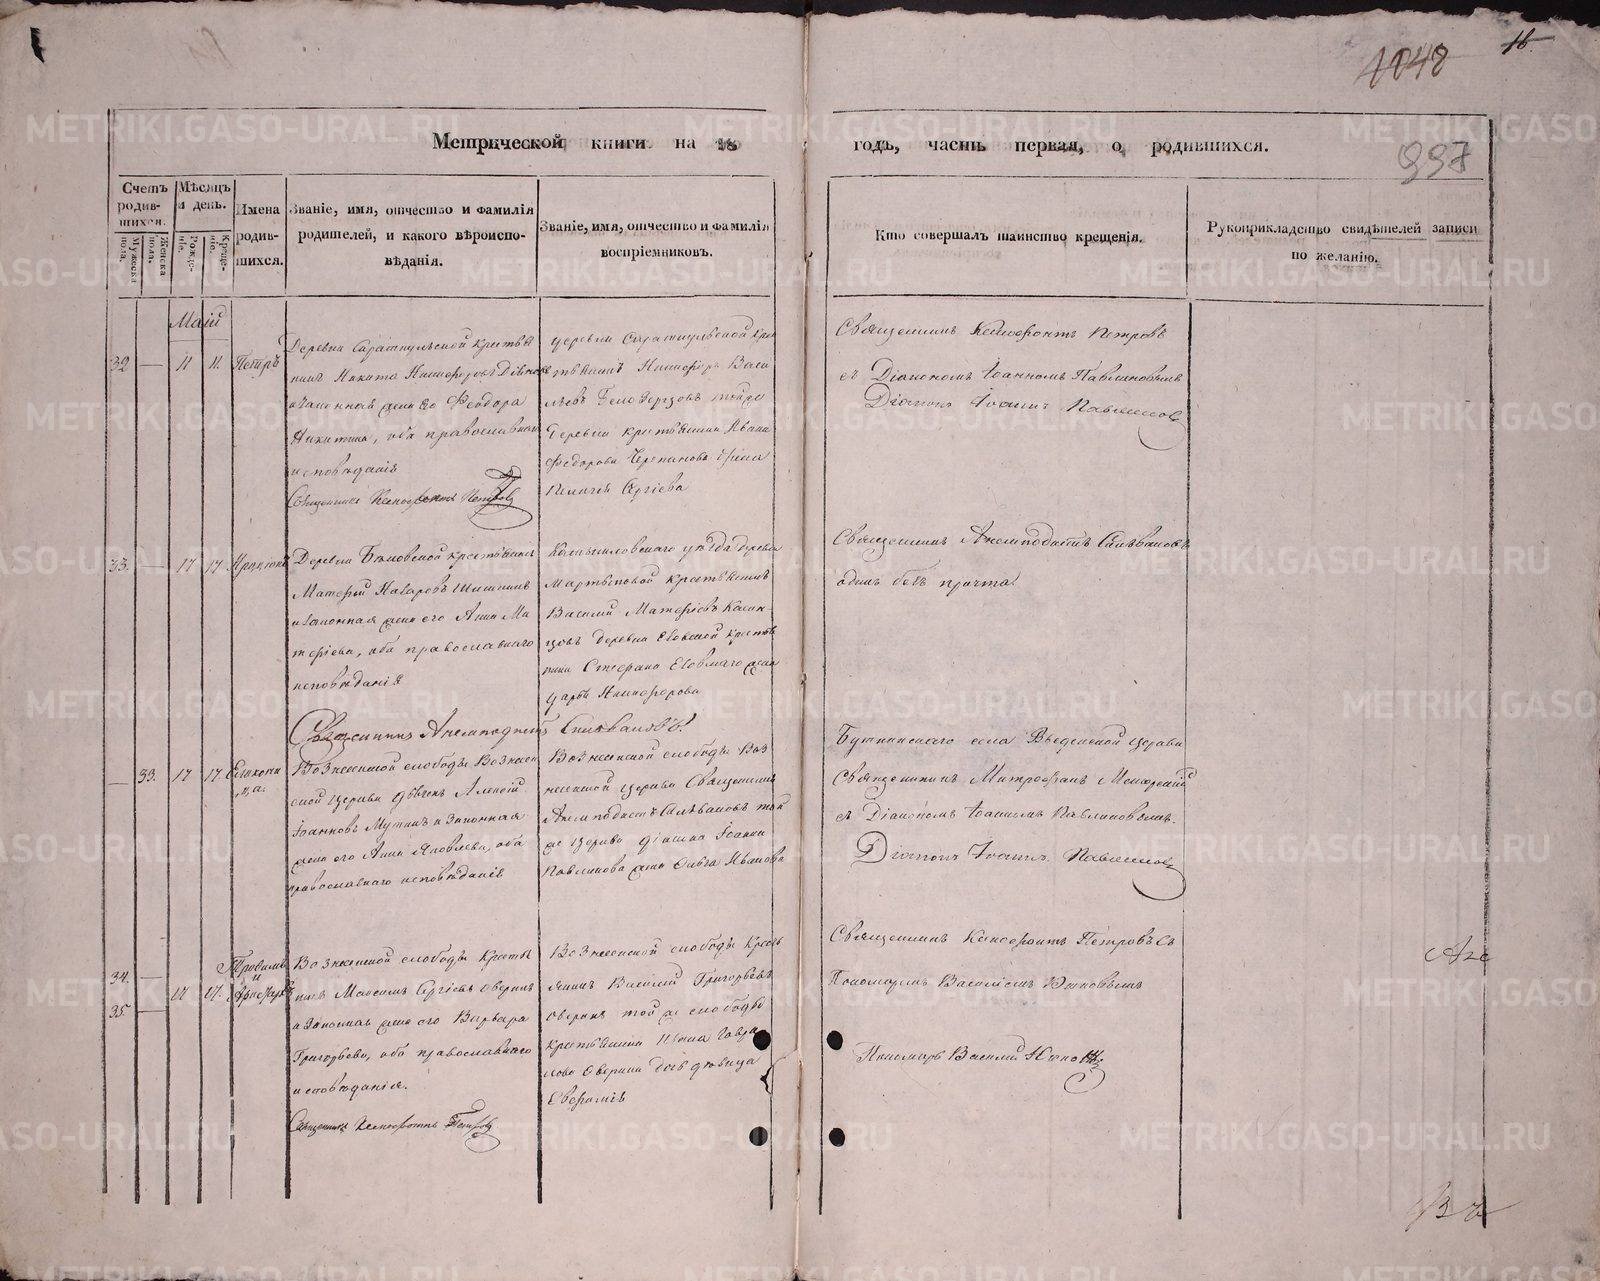 1048
16.
997
Метрической книги на 18
годъ, часть первая, о родившихся.
Счетъ родив-
шихся.
Мужеска пола.
Женска пола.
Мѣсяцъ и день.
Рожде-
нiе.
Креще-
нiе.
Имена родив-
шихся.
Званiе, имя, отчество и фамилiя
родителей, и какого вѣроиспо-
вѣданiя.
Званiе, имя, отчество и фамилiя
воспрiемниковъ.
Кто совершалъ таинство крещенiя.
Рукоприкладство свидѣтелей записи
по желанiю.
Маiй
32 — 11 11. Петръ
Деревни Саратпульской крестья
нинъ Никита Никифоровъ
и законная жена его Феодора
Никитина, оба православнаго
исповѣданiя
Священникъ Ксенофонтъ Петровъ
деревни Саратпульской кре
стьянинъ Никифоръ Васи
льевъ Белоборцовъ той же
деревни крестьянина Ивана
Федорова Черепанова жена
Пелагея Сергiева
Священникъ Ксенофонтъ Петровъ
съ Дiакономъ Iоанномъ Павлиновымъ
Дiаконъ Iоаннъ Павлиновъ
33. — 17 17.
Деревни крестьянинъ
Матфей Назаровъ Шишкинъ
и законная жена его Анна Ма
тфiева, оба православнаго
исповѣданiя
Священникъ Анемподистъ Сильвановъ
Камышловскаго уѣзда деревни
Мартыновой крестьянинъ
Василiй Матфiевъ Казан-
цовъ деревни крестья
нина Стефана жена
Дарья Никифорова
Священникъ Анемподистъ Сильвановъ
одинъ безъ причта.
— 33. 17 17.
Вознесенской слободы Вознесен
ской церкви дьячекъ Алексiй
Iоанновъ Мутинъ и законная
жена его Анна Яковлева, оба
православнаго исповѣданiя
Вознесенской слободы Воз
несенской церкви Священникъ
Анемподистъ Сильвановъ той
же церкви дiакона Iоанна
Павлинова жена Ольга Иванова
Буткинскаго села Введенской церкви
Священникъ Митрофанъ
съ Дiакономъ Iоанномъ Павлиновымъ.
Дiаконъ Iоаннъ Павлиновъ
34. —
35 —
17 17.
Трофимъ
и
Вознесенской слободы кресть
нинъ Максимъ Сергiевъ Оверинъ
и законная жена его Варвара
Григорьева, оба православнаго
исповѣданiя.
Священникъ Ксенофонтъ Петровъ
Вознесенской слободы кресть
янинъ Василiй Григорьевъ
Оверинъ той же слободы
крестьянина Гаври
лова Оверина дочь дѣвица
Евфимiя
Священникъ Ксенофонтъ Петровъ съ
Пономаремъ Василiемъ Южковымъ
Пономарь Василiй Южковъ